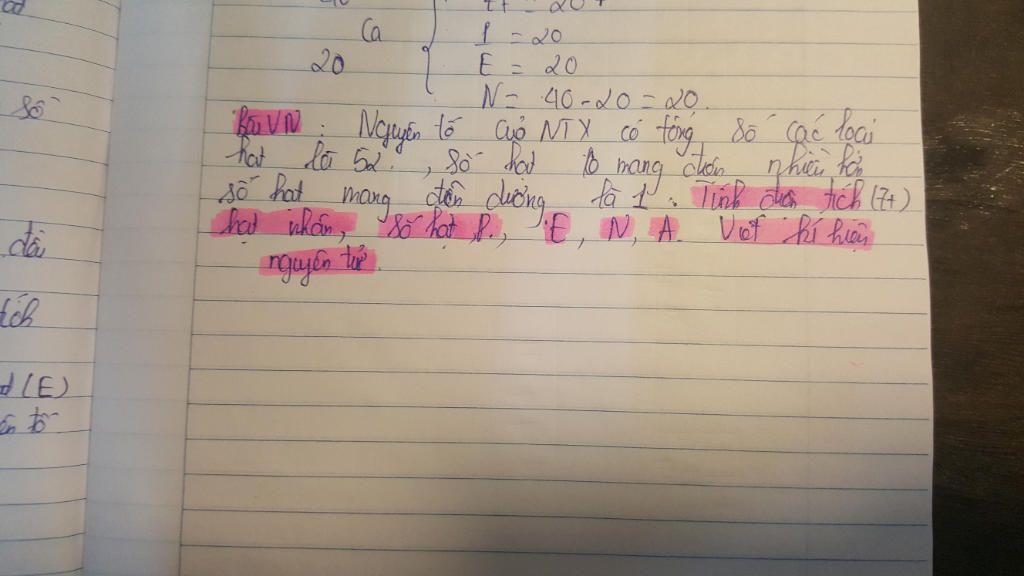 Z+ = 20+
Ca
P = 20
20
E = 20
N = 40 - 20 = 20.
số
Bài VN : Nguyên tố của NTX có tổng số các loại
hạt là 52. , số hạt k mang điện nhiều hơn
số hạt mang điện dương là 1. Tính điện tích (Z+)
hạt nhân, số hạt P, E, N, A. Viết kí hiệu
nguyên tử.
đôi
tích
(E)
tố